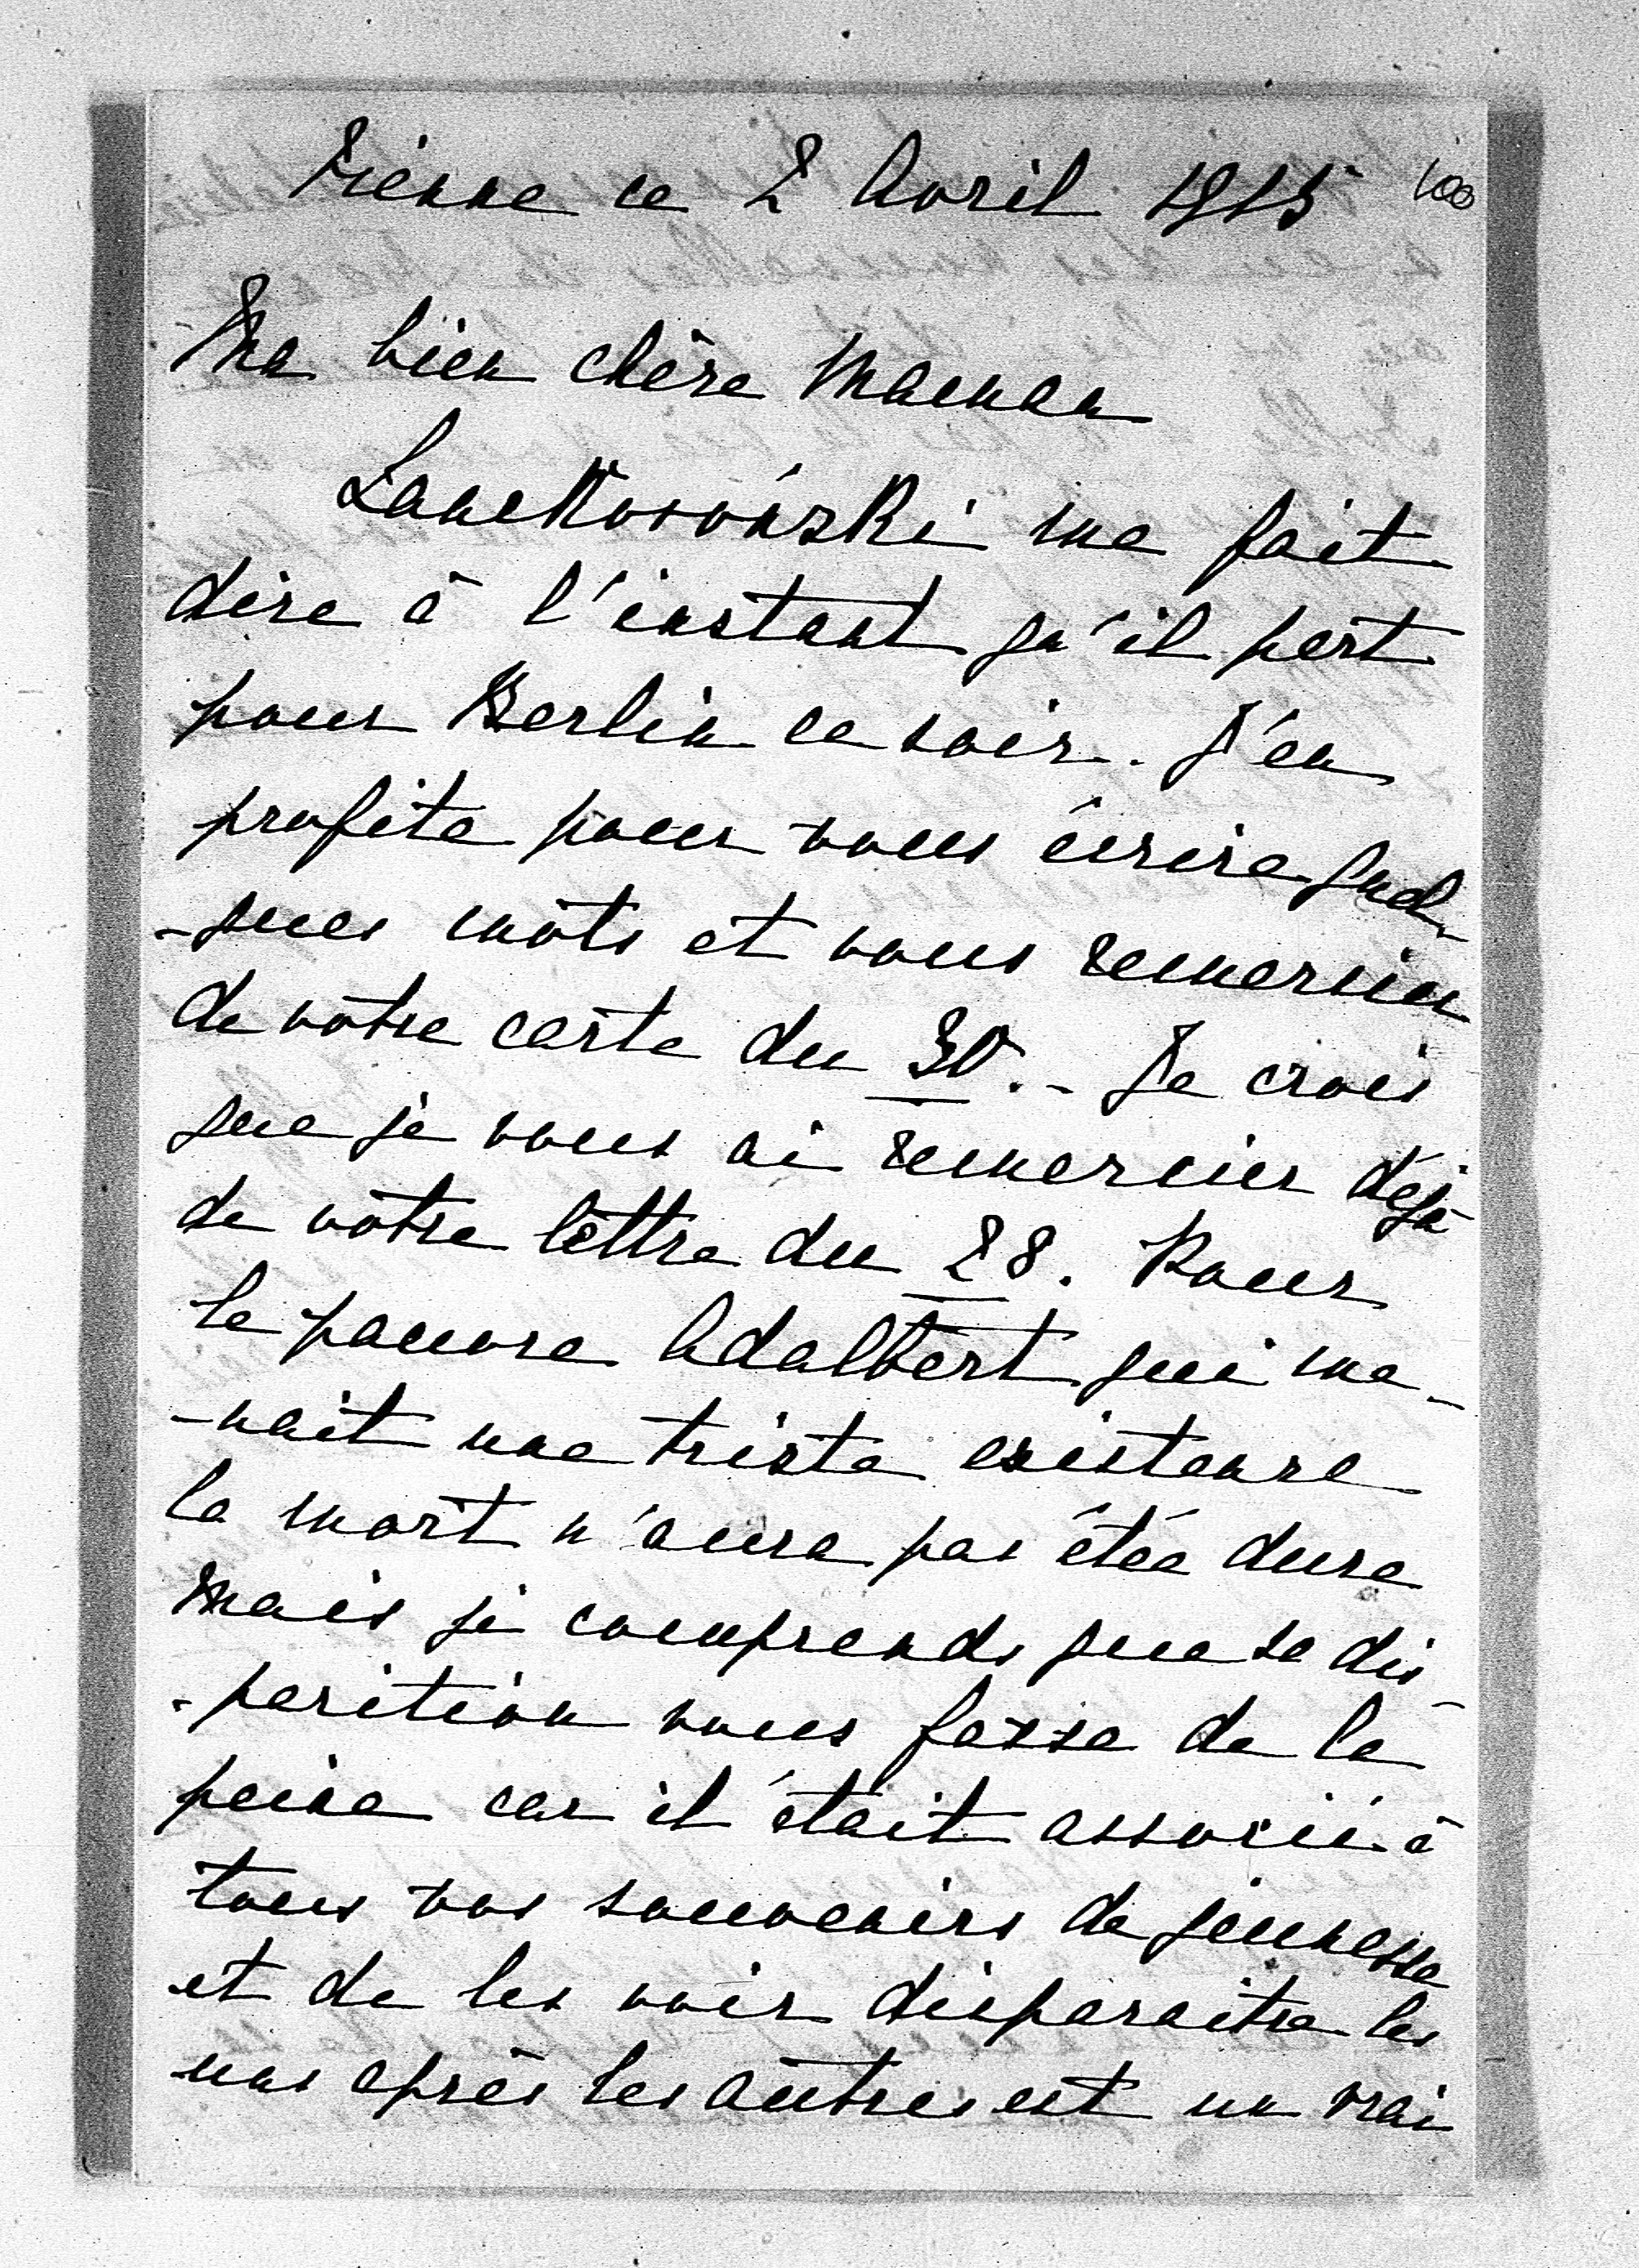 Vienne ce 2 Avril 1915 100
Ma bien chère Maman
Lanckoroński me fait
dire à l'instant qu'il part
pour Berlin ce soir. J'en
profite pour vous écrire quel-
-ques mots et vous remercier
de vôtre carte du 30. - Je crois
que je vous ai remercier déjà
de vôtre lettre du 28. Pour
le pauvre Adalbert qui me-
-nait une triste existence
la mort n'aura pas étée dure
mais je comprends que sa dis-
-parition vous fasse de la
peine car il était associé à
tous vos souvenirs de jeunesse
et de les voir disparaitre les
uns après les autres est un vrai